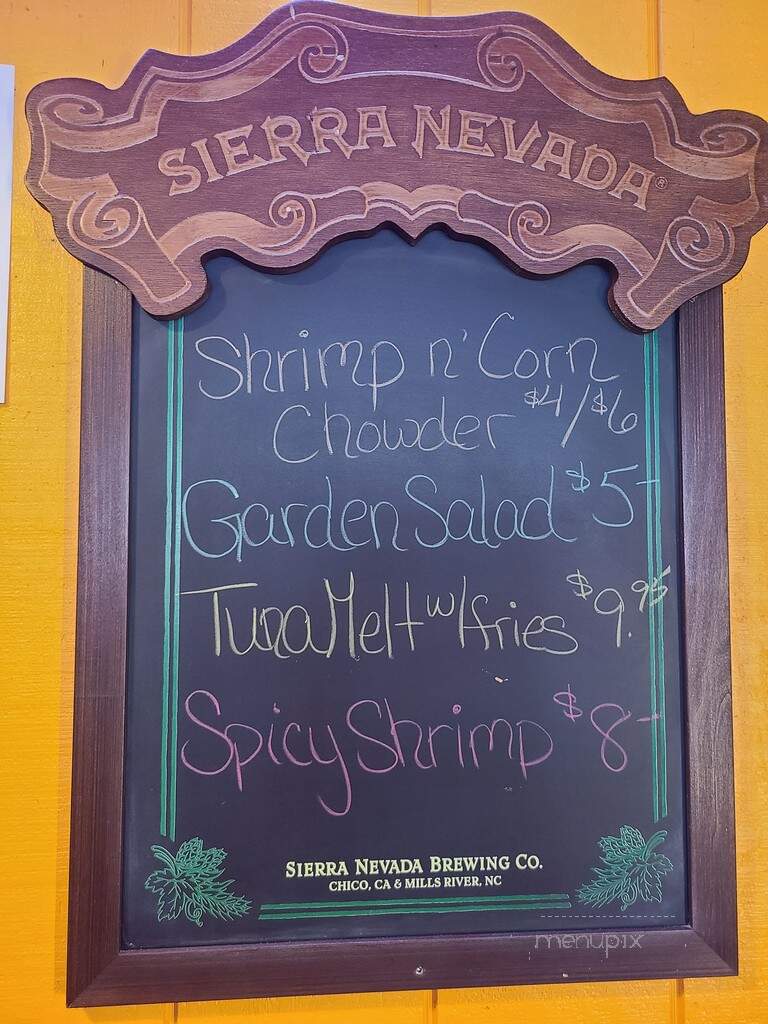 SIERRA NEVADA®
Shrimp n' Corn
Chowder $4/$6
Garden Salad $5-
Tuna Melt w/fries $9.95
Spicy Shrimp $8-
SIERRA NEVADA BREWING CO.
CHICO, CA & MILLS RIVER, NC
menupix